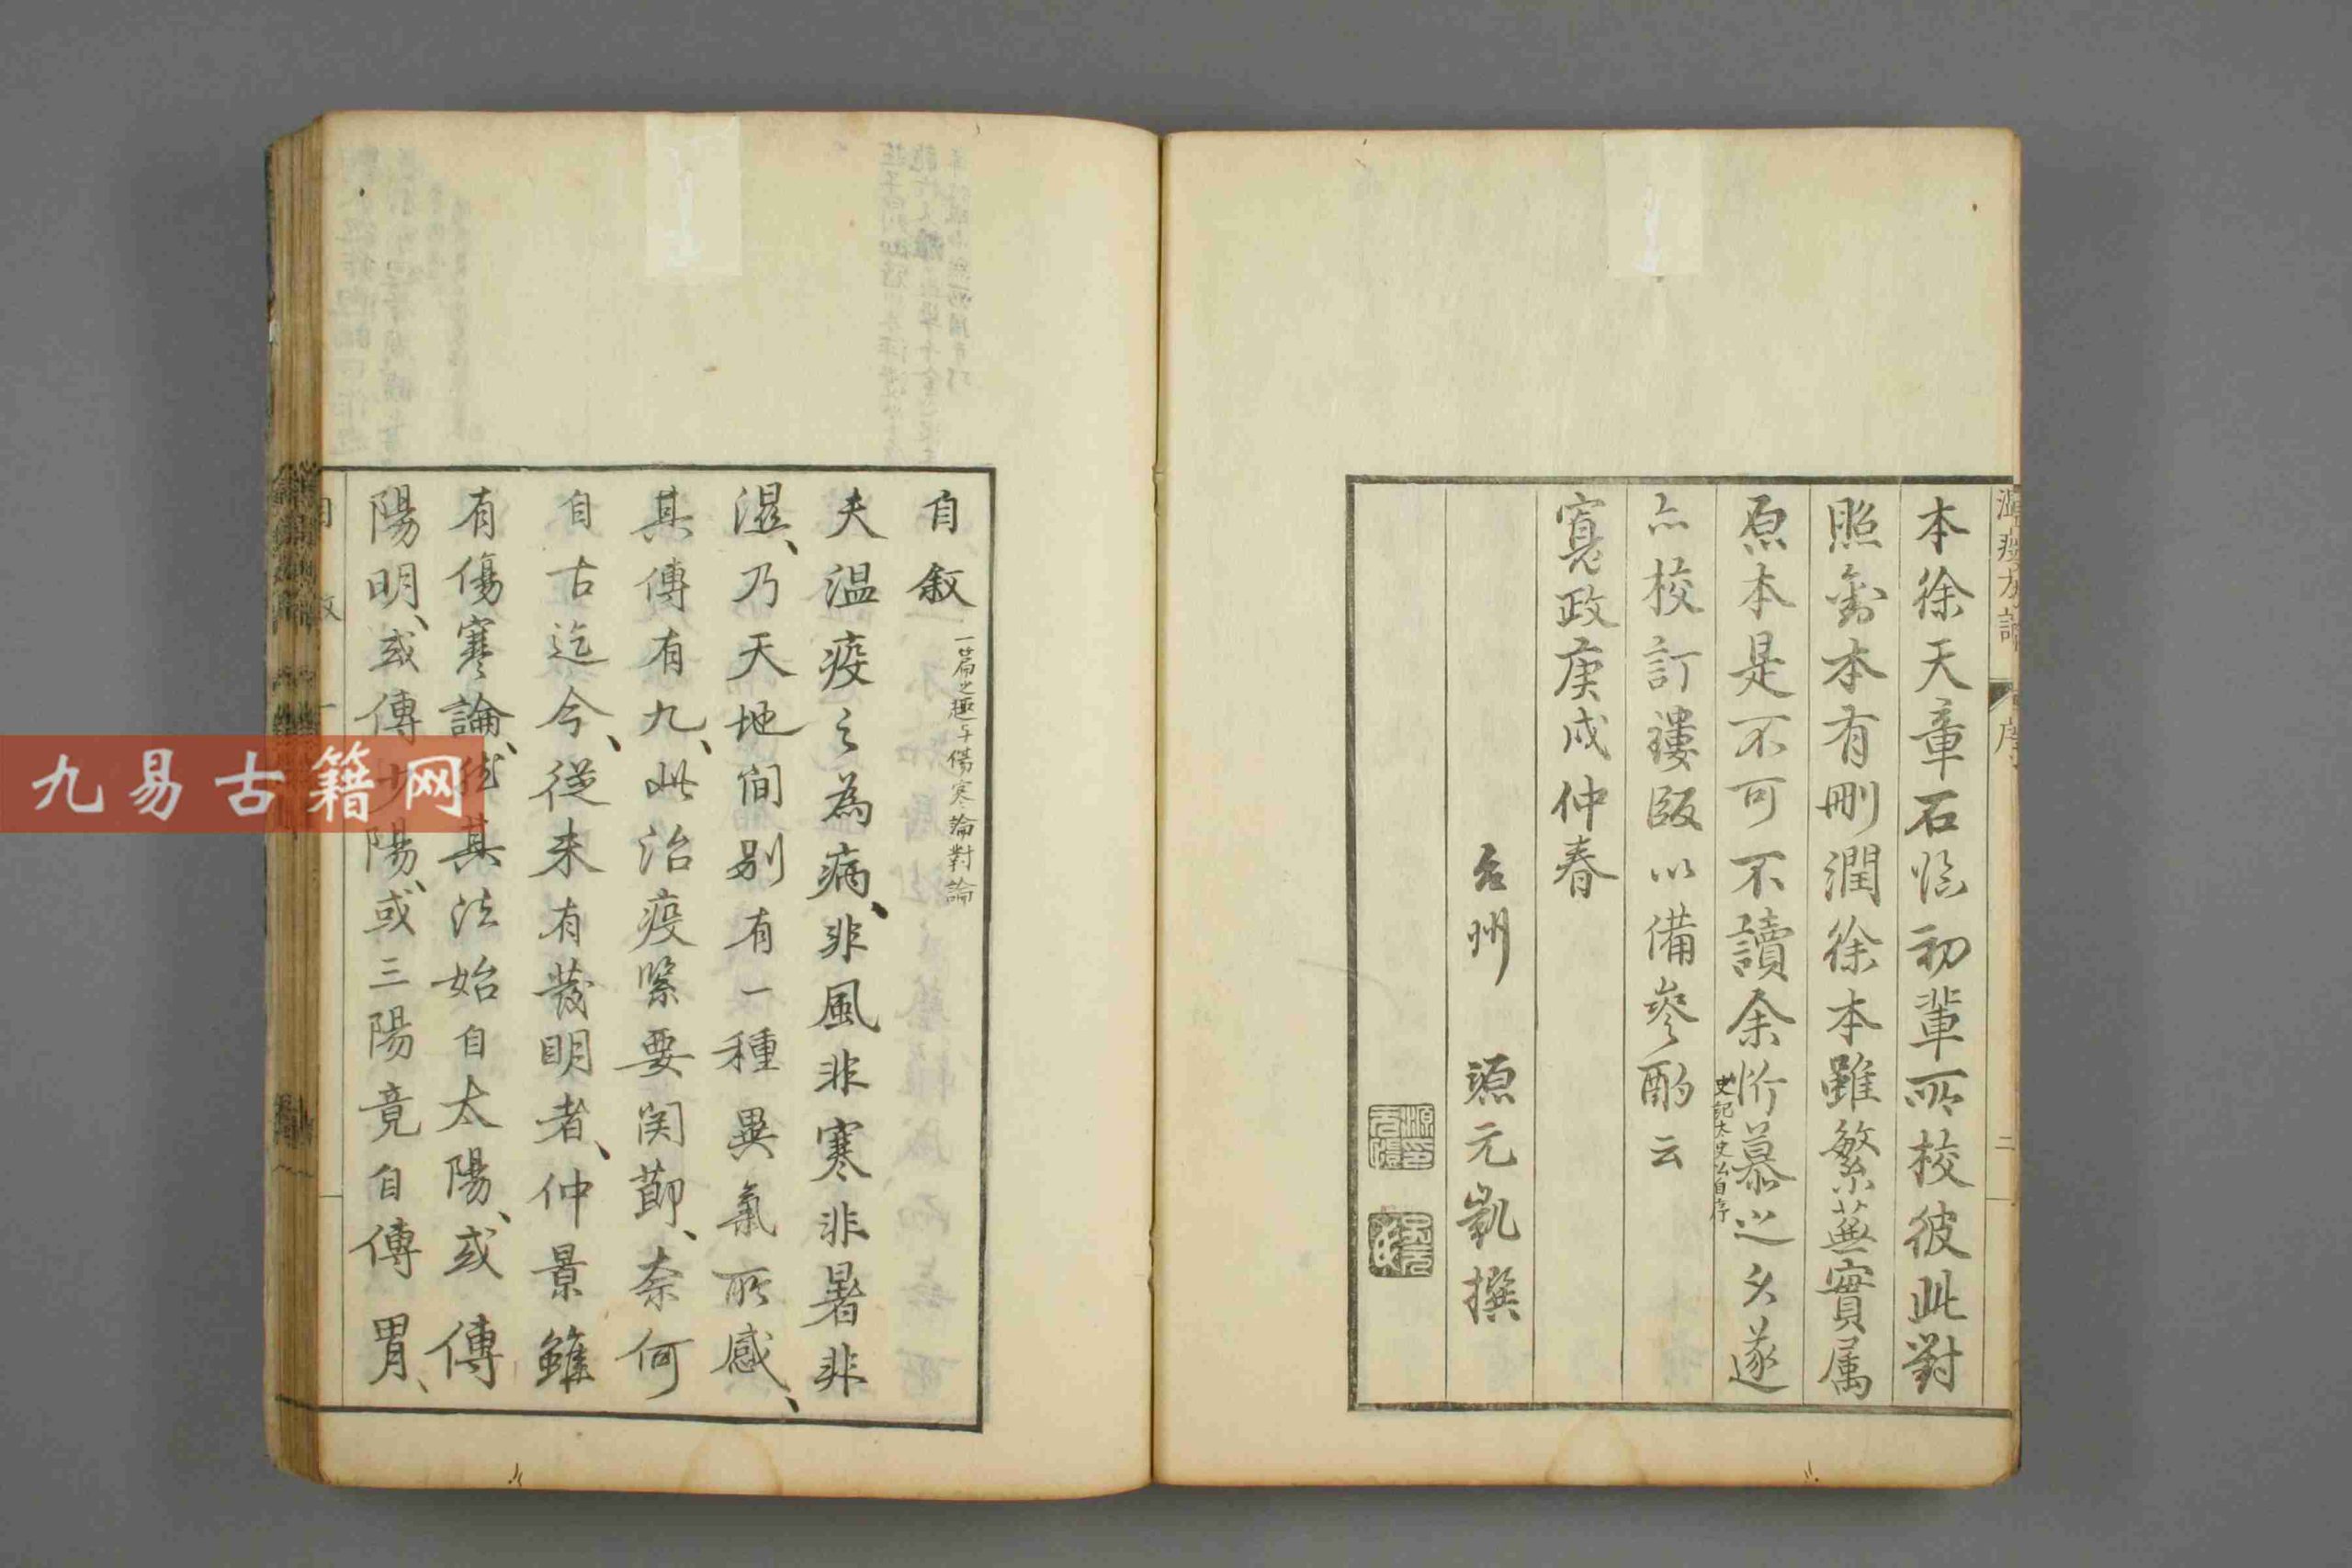 本徐天章石临初輩所校彼此對
照劉本有刪潤徐本雖繁蕪實属
原本是不可不讀余所慕之久遂
史記太史公自序
亦校訂鏤版以備參酌云
寛政庚戌仲春
台州 源元凱撰
二
自叙
一篇之趣与傷寒論對論
夫温疫之為病、非風非寒非暑非
濕、乃天地间别有一種異氣所感、
其傳有九、此治疫緊要関節、奈何
自古迄今、從来有發明者、仲景雖
有傷寒論、然其法始自太陽、或傳
陽明、或傳少陽、或三陽竟自傳胃、
九易古籍网